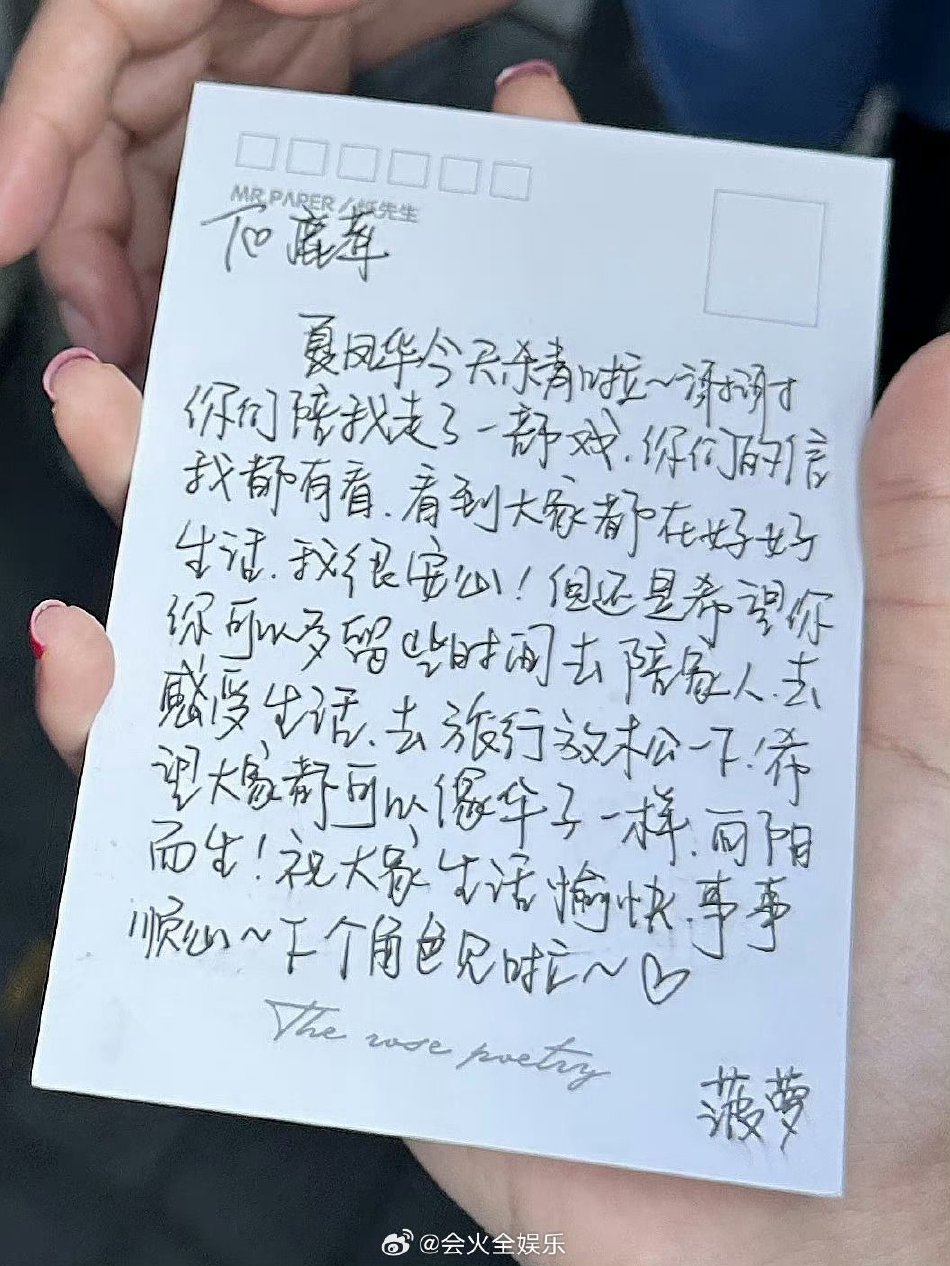 MR.PAPER / 纸先生
To 鹿茸
夏凤华今天杀青啦~谢谢
你们陪我走了一部戏.你们的信
我都有看.看到大家都在好好
生活.我很安心!但还是希望你
你可以多留些时间去陪家人.去
感受生活.去旅行放松一下!希
望大家都可以像华子一样.向阳
而生!祝大家生活愉快.事事
顺心~下个角色见啦~♡
The rose poetry
菠萝
@会火全娱乐